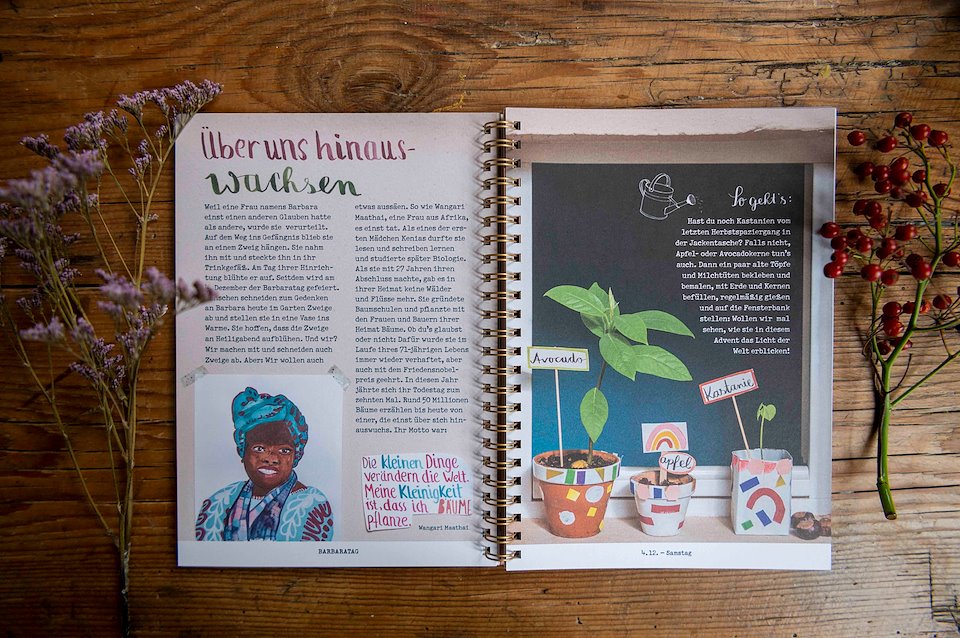 Über uns hinaus-
wachsen
Weil eine Frau namens Barbara
einst einen anderen Glauben hatte
als andere, wurde sie verurteilt.
Auf dem Weg ins Gefängnis blieb sie
an einem Zweig hängen. Sie nahm
ihn mit und steckte ihn in ihr
Trinkgefäß. Am Tag ihrer Hinrich-
tung blühte er auf. Seitdem wird am
Dezember der Barbaratag gefeiert.
schen schneiden zum Gedenken
an Barbara heute im Garten Zweige
ab und stellen sie in eine Vase ins
Warme. Sie hoffen, dass die Zweige
an Heiligabend aufblühen. Und wir?
Wir machen mit und schneiden auch
Zweige ab. Aber: Wir wollen auch
etwas aussäen. So wie Wangari
Maathai, eine Frau aus Afrika,
es einst tat. Als eines der ers-
ten Mädchen Kenias durfte sie
lesen und schreiben lernen
und studierte später Biologie.
Als sie mit 27 Jahren ihren
Abschluss machte, gab es in
ihrer Heimat keine Wälder
und Flüsse mehr. Sie gründete
Baumschulen und pflanzte mit
den Frauen und Bauern ihrer
Heimat Bäume. Ob du's glaubst
oder nicht: Dafür wurde sie im
Laufe ihres 71-jährigen Lebens
immer wieder verhaftet, aber
auch mit dem Friedensnobel-
preis geehrt. In diesem Jahr
jährte sich ihr Todestag zum
zehnten Mal. Rund 50 Millionen
Bäume erzählen bis heute von
einer, die einst über sich hin-
auswuchs. Ihr Motto war:
Die kleinen Dinge
verändern die Welt.
Meine Kleinigkeit
ist, dass ich BÄUME
pflanze.
Wangari Maathai
BARBARATAG
So geht's:
Hast du noch Kastanien vom
letzten Herbstspaziergang in
der Jackentasche? Falls nicht,
Apfel- oder Avocadokerne tun's
auch. Dann ein paar alte Töpfe
und Milchtüten bekleben und
bemalen, mit Erde und Kernen
befüllen, regelmäßig gießen
und auf die Fensterbank
stellen! Wollen wir mal
sehen, wie sie in diesem
Advent das Licht der
Welt erblicken!
Avocado
Kastanie
Apfel
4.12. – Samstag